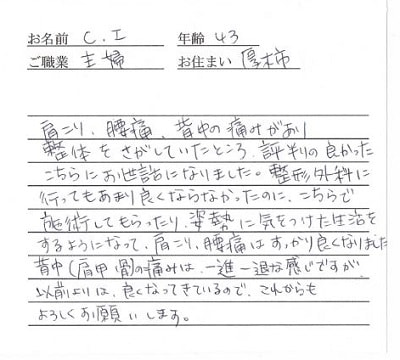 お名前 C.I 年齢 43
ご職業 主婦 お住まい 厚木市
肩こり、腰痛、背中の痛みがあり
整体をさがしていたところ、評判の良かった
こちらにお世話になりました。整形外科に
行ってもあまり良くならなかったのに、こちらで
施術してもらったり、姿勢に気をつけた生活を
するようになって、肩こり、腰痛はすっかり良くなりました
背中(肩甲骨)の痛みは、一進一退な感じですが、
以前よりは、良くなってきているので、これからも
よろしくお願いします。